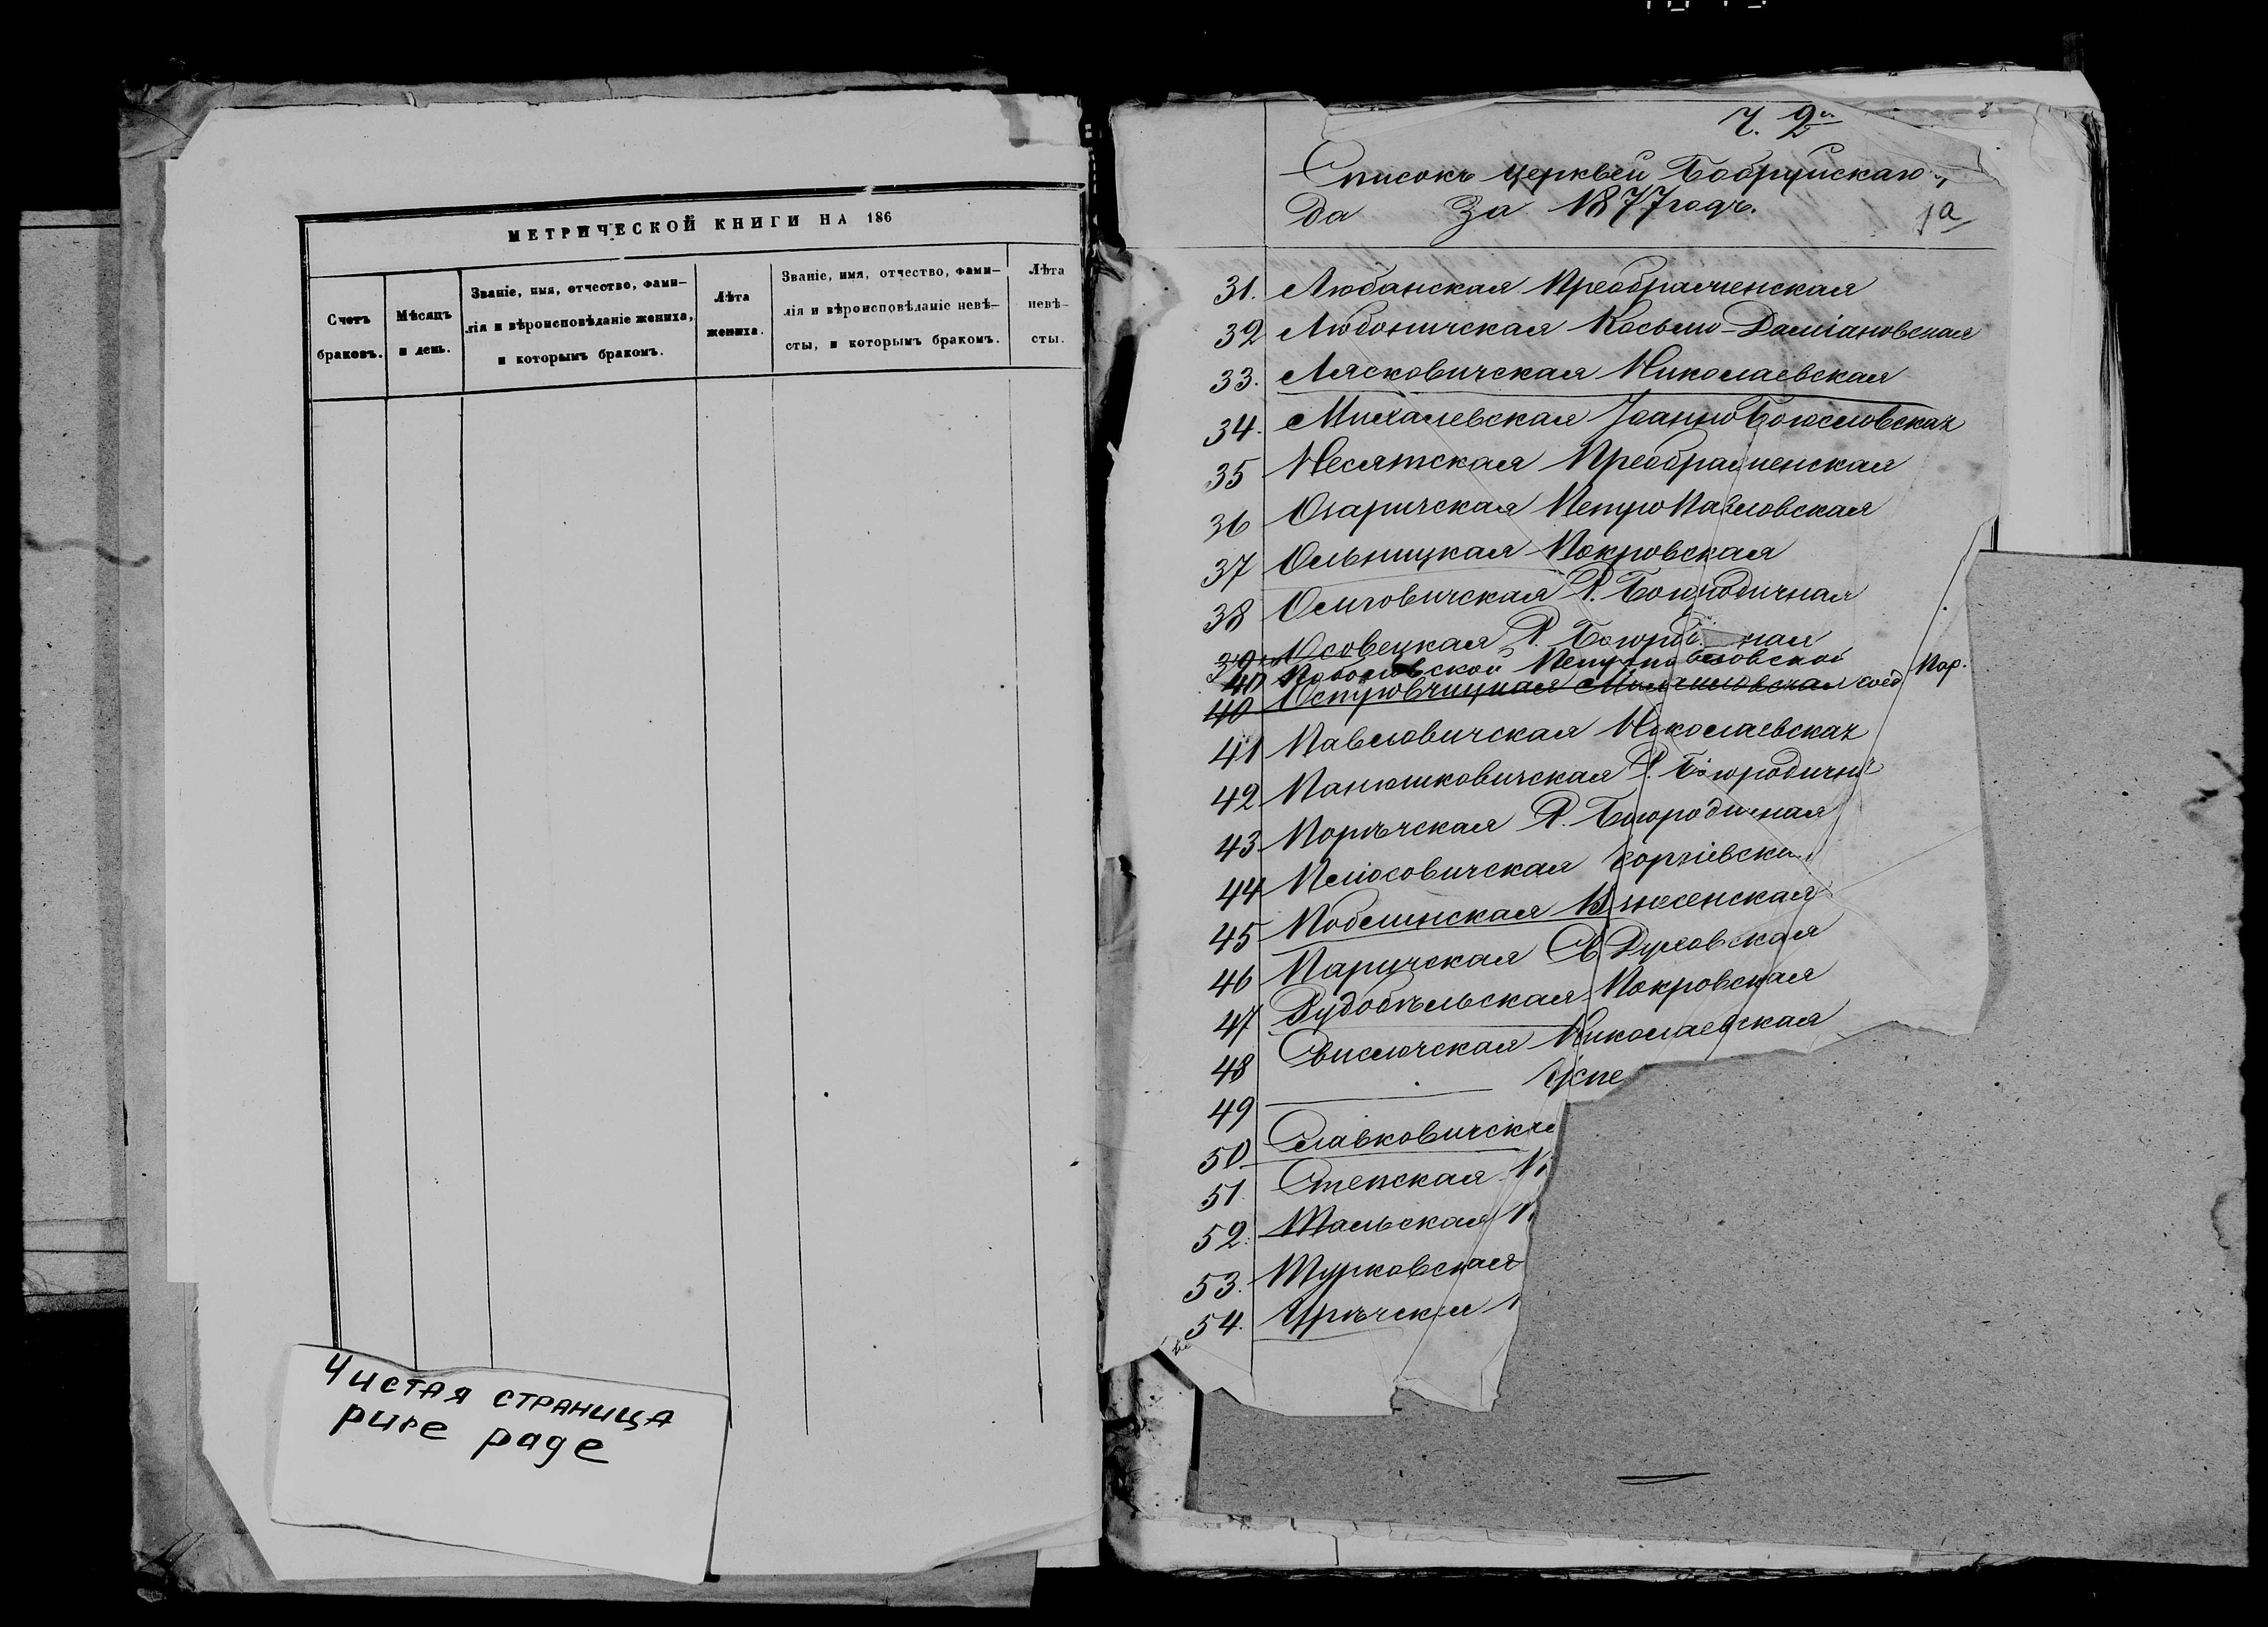 МЕТРИЧЕСКОЙ КНИГИ НА 186
Счетъ
браковъ.
Мѣсяцъ
и день.
Званіе, имя, отчество, фами-
лія и вѣроисповѣданіе жениха,
и которымъ бракомъ.
Лѣта
жениха.
Званіе, имя, отчество, фами-
лія и вѣроисповѣданіе невѣ-
сты, и которымъ бракомъ.
Лѣта
невѣ-
сты.
Чистая страница
pure page
Ч. 2я
Списокъ церквей Бобруйскаго у
да За 1877 годъ.
1а
31. Любанская Преображенская
32 Любоничская Косьмо-Даміановская
33. Лясковичская Николаевская
34. Михалевская Іоанно Богословская
35 Несятская Преображенская
36 Озаричская Петро Павловская
37 Ольницкая Покровская
38 Омговичская Р. Богородичная
39. Осовецкая Р. Богород ная
40 Петропавловской
40 Островчицкая Михаиловская соед Пар.
41 Павловичская Николаевская
42 Панюшковичская Р. Богородична
43 Порѣчская Р. Богородичная
44 Плюсовичская Георгіевска
45 Поблинская Вознесенская
46 Паричская Св Духовская
47 Рудобѣльская Покровская
48 Свислочская Николаевская
49 — Успе
50 Славковичска
51 Степская
52. Тальская
53. Турковская
54. Урѣчская